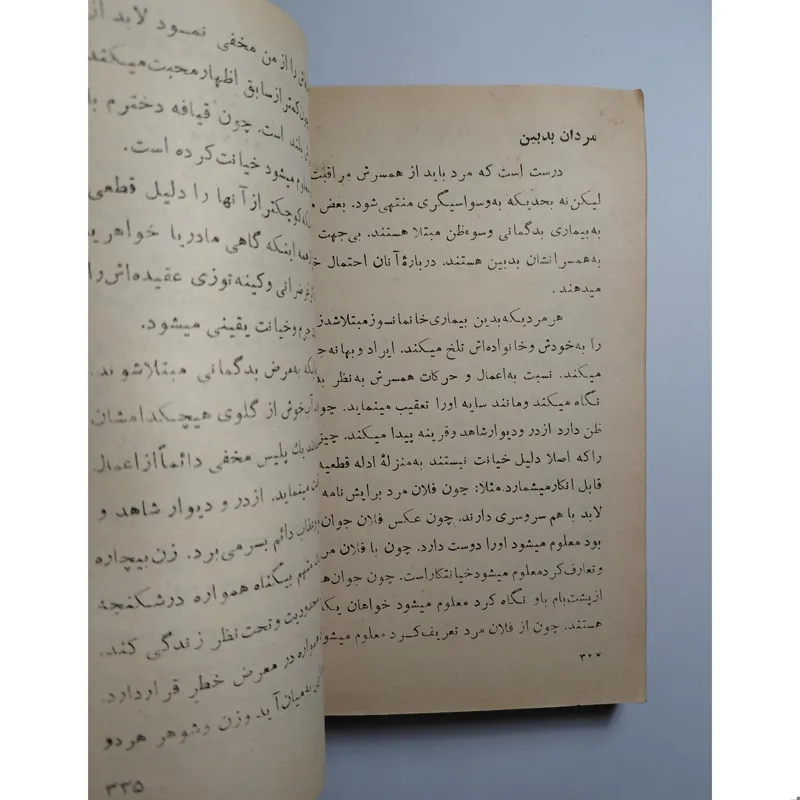 مردان بدبین
درست است که مرد باید از همسرش مراقبت
لیکن نه بحدیکه به‌وسواسیگری منتهی شود. بعض
به‌بیماری بدگمانی وسوءظن مبتلا هستند. بی‌جهت
به‌همسرانشان بدبین هستند. دربارهٔ آنان احتمال
میدهند.
هر مردیکه بدین بیماری خانمانسوز مبتلا شد
را به‌خودش وخانواده‌اش تلخ میکند. ایراد و بهانه
میکند. نسبت به‌اعمال و حرکات همسرش به‌نظر
نگاه میکند ومانند سایه اورا تعقیب مینماید. چون
ظن دارد ازدر ودیوار شاهد وقرینه پیدا میکند.
راکه اصلا دلیل خیانت نیستند به‌منزلهٔ ادله قطعیه
قابل انکار میشمارد مثلا: چون فلان مرد برایش نامه
لابد با هم سروسری دارند. چون عکس فلان جوان
بود معلوم میشود اورا دوست دارد. چون با فلان
وتعارف کرد معلوم میشود خیانتکار است. چون جوان
ازپشت‌بام باو نگاه کرد معلوم میشود خواهان یک
هستند. چون از فلان مرد تعریف کرد معلوم میشود
را از من مخفی نمود لابد از
کمتر از سابق اظهار محبت میکند
است. چون قیافه دخترم
میشود خیانت کرده است.
کوچکتر از آنها را دلیل قطعی
اینکه گاهی مادر یا خواهر
وکینه‌توزی عقیده‌اش را
وخیانت یقینی میشود.
به‌مرض بدگمانی مبتلا شوند.
خوش از گلوی هیچکدامشان
یك پلیس مخفی دائماً از اعمال
مینماید. ازدر و دیوار شاهد و
دائم بسر می‌برد. زن بیچاره
بیگناه همواره در شکنجه
محدودیت وتحت نظر زندگی کند.
در معرض خطر قرار دارد.
به‌میان آید وزن وشوهر هردو
۳۳۵